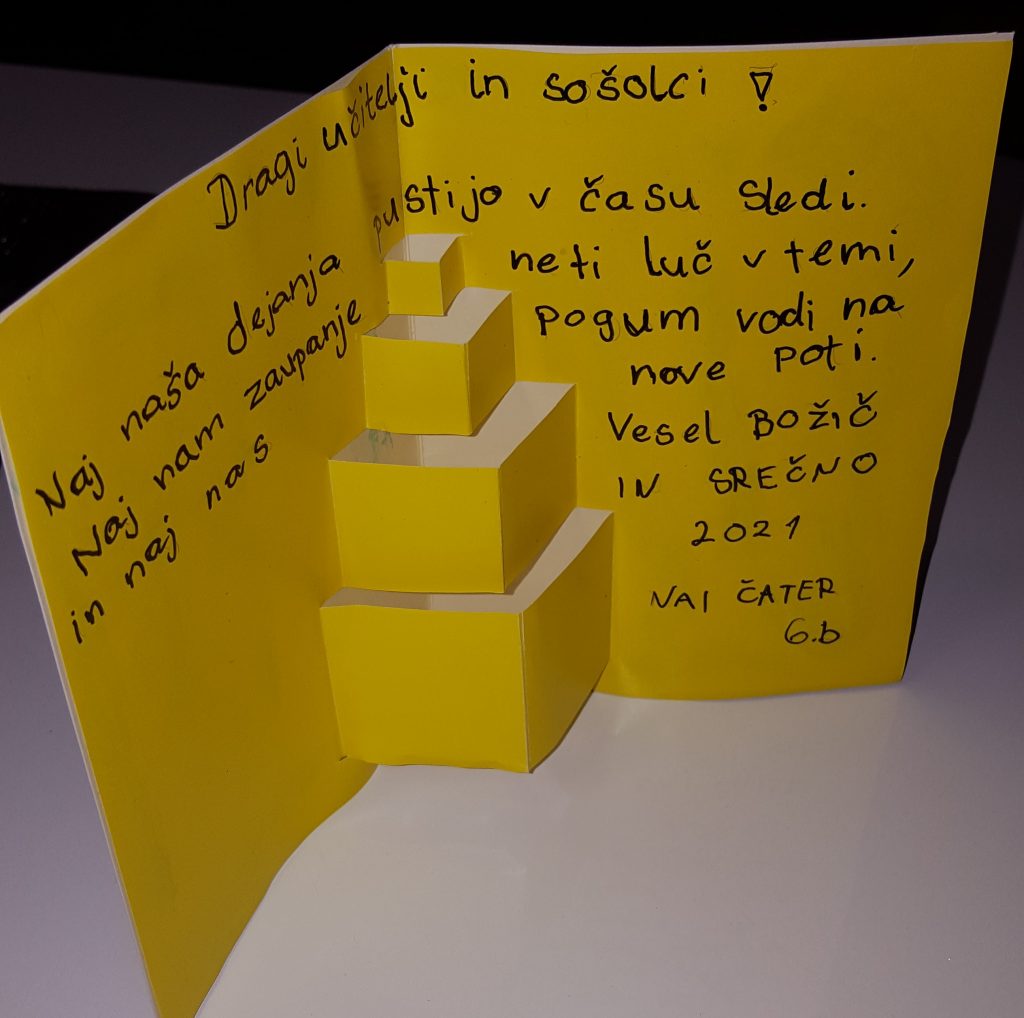 Dragi učitelji in sošolci !
Naj naša dejanja pustijo v času sledi.
Naj nam zavpanje neti luč v temi,
in naj nas pogum vodi na
nove poti.
Vesel BOŽIČ
IN SREČNO
2021
NAI ČATER
6.b